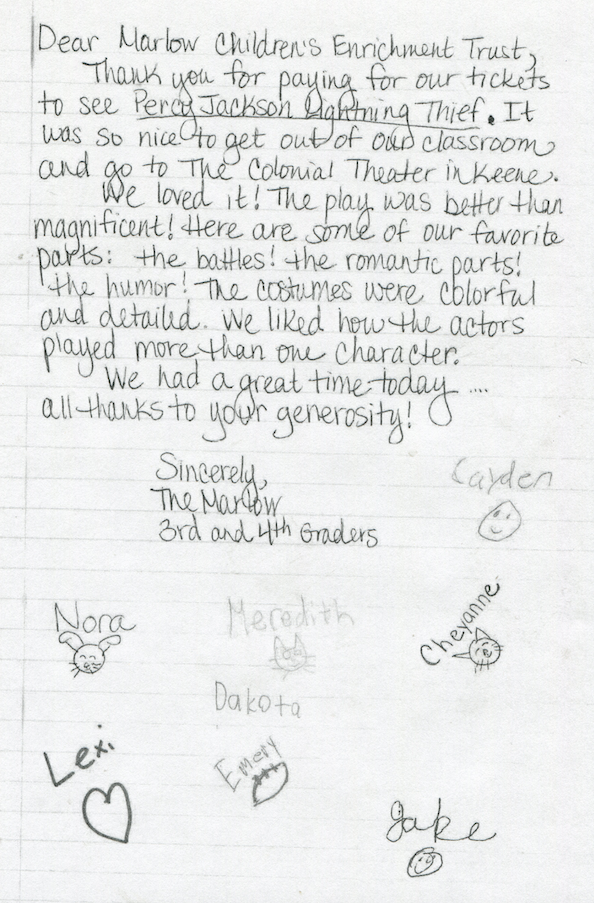 Dear Marlow Children's Enrichment Trust,
Thank you for paying for our tickets
to see Percy Jackson Lightning Thief. It
was so nice to get out of our classroom
and go to The Colonial Theater in Keene.
We loved it! The play was better than
magnificent! Here are some of our favorite
parts: the battles! the romantic parts!
the humor! The costumes were colorful
and detailed. We liked how the actors
played more than one character.
We had a great time today ....
all thanks to your generosity!
Sincerely,
The Marlow
3rd and 4th Graders
Cayden
Nora
Meredith
Cheyanne
Dakota
Lexi
Emery
Jake